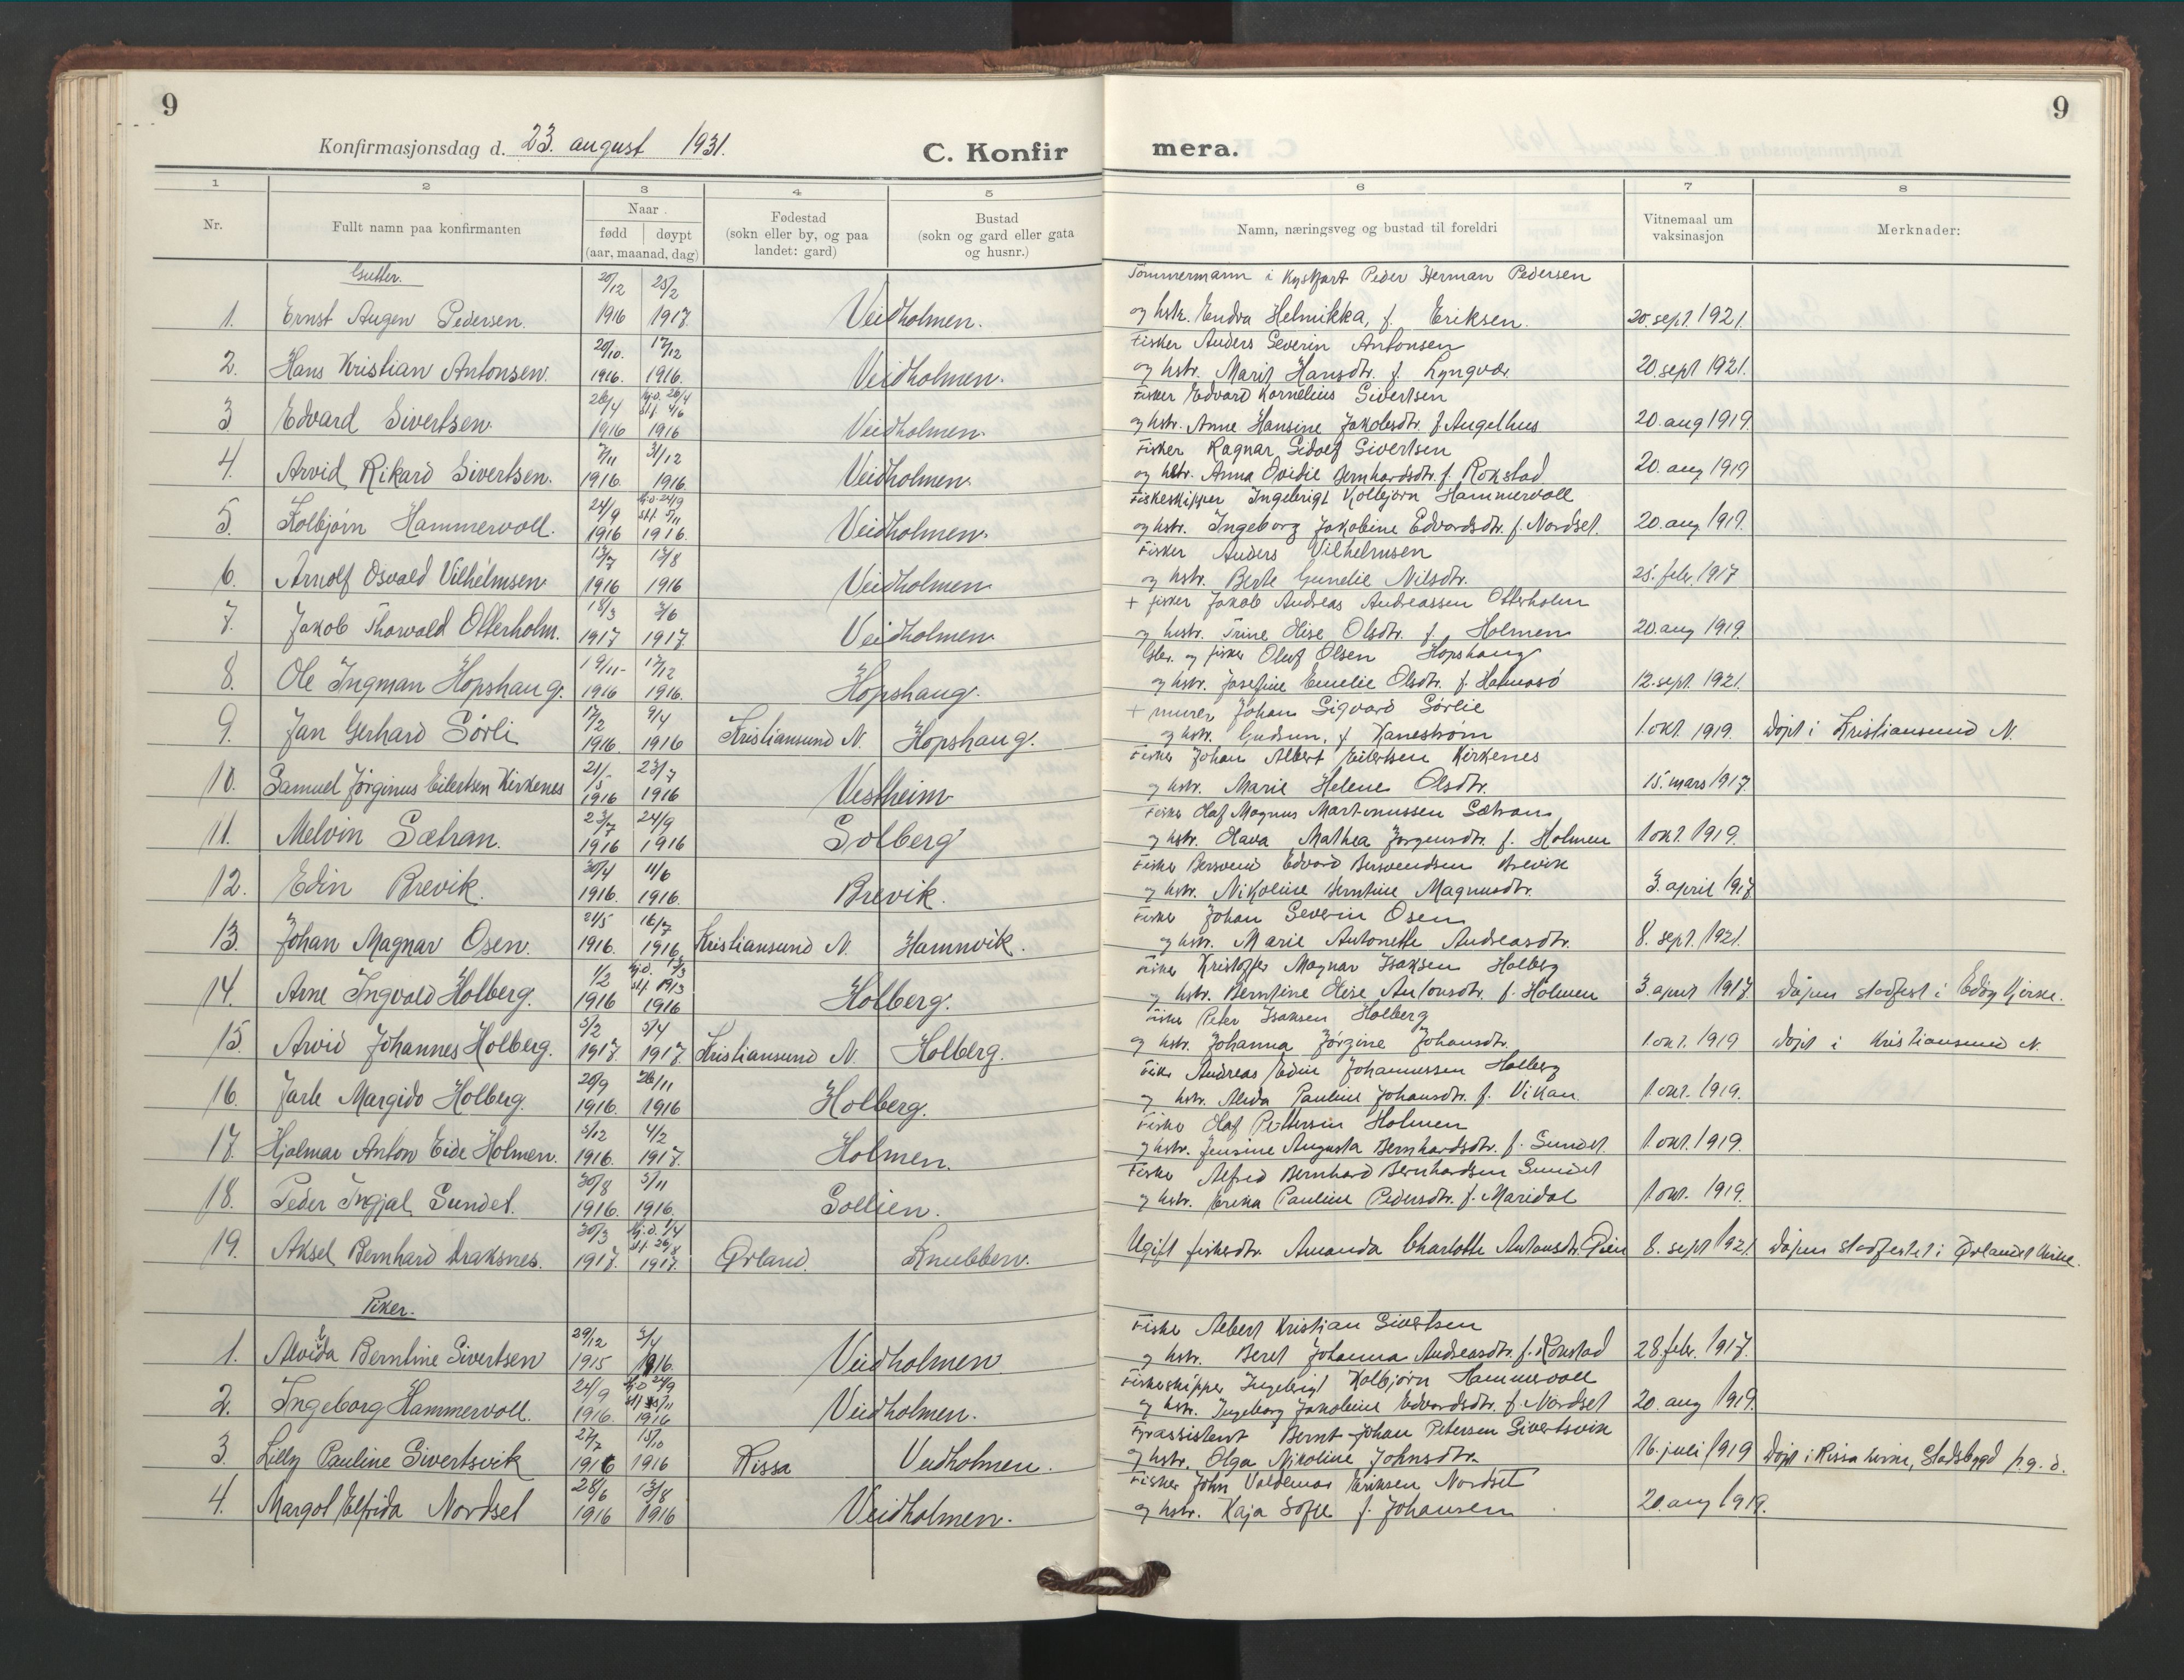 9
9
Konfirmasjonsdag d. 23. august 1931.
C. Konfirmera.
1 2 3 4 5 6 7 8
Nr. Fullt namn paa konfirmanten Naar født døypt (aar, maanad, dag) Fødestad (sokn eller by, og paa landet: gard) Bustad (sokn og gard eller gata og husnr.) Namn, næringsveg og bustad til foreldri Vitnemaal um vaksinasjon Merknader:
Gutter. 20/12 25/2 Tømmermann i Peder Herman Pedersen
1. Ernst Augen Pedersen. 1916 1917. Veidholmen. og hstr. Endra Helmikka, f. Eriksen. 20. sept. 1921.
20/10. 17/12 Fisker Anders Severin Antonsen
2. Hans Kristian Antonsen. 1916. 1916. Veidholmen. og hstr. Marit Hansdtr. f. Lyngvær 20. sept 1921.
26/4 hj.d. 26/4 stf. 4/6 Fisker Edvard Kornelius Sivertsen
3. Edvard Sivertsen. 1916 1916 Veidholmen. og hstr. Anne Hansine Jakobsdtr. f. Angelhus 20. aug 1919.
7/11 31/12 Fisker Ragnar Sidolf Sivertsen
4. Arvid Rikard Sivertsen. 1916. 1916. Veidholmen. og hstr. Anna Ovidie Bernhardsdtr. f. Rokstad 20. aug 1919
24/9 hj.d. 24/9 stf. 5/11 Fiskeskipper Ingebrigt Kolbjørn Hammervoll
5. Kolbjørn Hammervoll. 1916 1916. Veidholmen. og hstr. Ingeborg Jakobine Edvardsdtr. f. Nordset. 20. aug 1919.
13/7 13/8 Fisker Anders Vilhelmsen
6. Arnolf Osvald Vilhelmsen 1916 1916 Veidholmen og hstr. Berte Gunelie Nilsdtr. 25. febr. 1917
18/3 3/6 + fisker Jakob Andreas Andreassen Otterholm
7. Jakob Thorvald Otterholm. 1917 1917. Veidholmen. og hstr. Trine Elise Olsdtr. f. Holmen 20. aug 1919.
19/11- 17/12 Gbr. og fisker Oluf Olsen Hopshaug
8. Ole Ingman Hopshaug. 1916 1916. Hopshaug. og hstr. Josefine Emelie Olsdtr. f. 12. sept. 1921.
17/2 9/4 + murer Johan Sigvard Sørlie
9. Jan Gerhard Sørli 1916. 1916 Kristiansund N. Hopshaug. og hstr. Gudrun, f. Kanestrøm 1. okt. 1919. Døpt i Kristiansund N.
21/5 23/7 Fisker Johan Albert Eilertsen Kirkenes
10. Samuel Jørginus Eilertsen Kirkenes 1916 1916 Vestheim og hstr. Marie Helene Olsdtr. 15. mars 1917.
23/7 24/9 Fisker Olaf Magnus Martinussen Sætran
11. Melvin Sætran. 1916 1916 Solberg og hstr. Olava Mathea Jørgensdtr. f. Holmen 1. okt. 1919.
30/4 11/6 Fisker Bersvend Edvard Bersvendsen Brevik
12. Edin Brevik. 1916. 1916. Brevik. og hstr. Nikoline Berntine Magnusdtr. 3. april 1917
21/5 16/7 Fisker Johan Severin Osen
13. Johan Magnar Osen. 1916. 1916. Kristiansund N. Hamnvik. og hstr. Marie Antonette Andreasdtr. 8. sept. 1921.
1/2 hj.d. stf. 19/3 Fisker Kristoffer Magnar Isaksen Holberg
14. Arne Ingvald Holberg. 1916 1916 Holberg. og hstr. Berntine Elise Antonsdtr. f. Holmen 3. april 1917. dåpen stadfest i Edøy kjerke.
5/2 5/4 Fisker Peter Isaksen Holberg
15. Arvid Johannes Holberg. 1917. 1917. Kristiansund N. Holberg. og hstr. Johanna Jørgine Johansdtr. 1. okt. 1919 døpt i Kristiansund N.
20/9 26/11 Fisker Andreas Edin Johannessen Holberg
16. Jarle Margido Holberg. 1916. 1916 Holberg. og hstr. Alida Pauline Johansdtr. f. Vikan. 1. okt. 1919.
5/12 4/2 Fisker Olaf Pettersen Holmen
17. Hjalmar Anton Eide Holmen. 1916. 1917. Holmen. og hstr. Jensine Augusta Bernhardsdtr. f. Sundet. 1. okt. 1919.
30/8 5/11 Fisker Alfred Bernhard Bernhardsen Sundet
18. Peder Ingjal Sundet. 1916. 1916. Sollien. og hstr. Erika Pauline Pedersdtr. f. Maridal 1. okt. 1919.
30/3 hj.d. 1/4 stf. 26/8
19. Aksel Bernhard Draksnes. 1917. 1917. Ørland. Knubben. Ugift fiskerdtr. Amanda Charlotte Antonsdtr. 8. sept 1921. dåpen stadfestet i Ørlandet kirke.
Piker.
29/12 3/4 Fisker Albert Kristian Sivertsen
1. Alvida Berntine Sivertsen 1915 1916. Veidholmen og hstr. Beret Johanna Andreasdtr. f. Rokstad 28. febr. 1917.
24/9 hj.d. 24/9 stf. 5/11 Fiskeskipper Ingebrigt Kolbjørn Hammervoll
2. Ingeborg Hammervoll. 1916. 1916 Veidholmen. og hstr. Ingeborg Jakobine Edvardsdtr. f. Nordset 20. aug 1919.
27/7 15/10 Fyrassistent Bernt Johan Petersen Sivertsvik
3. Lilly Pauline Sivertsvik 1916 1916 Rissa Veidholmen. og hstr. Olga Nikoline Johnsdtr. 16. juli 1919 Døpt i Rissa kirke, Stadsbygd p.g.d.
28/6 13/8 Fisker John Valdemar Eriksen Nordset
4. Margot Elfrida Nordset 1916 1916 Veidholmen. og hstr. Kaja Sofie f. Johansen 20. aug 1919.